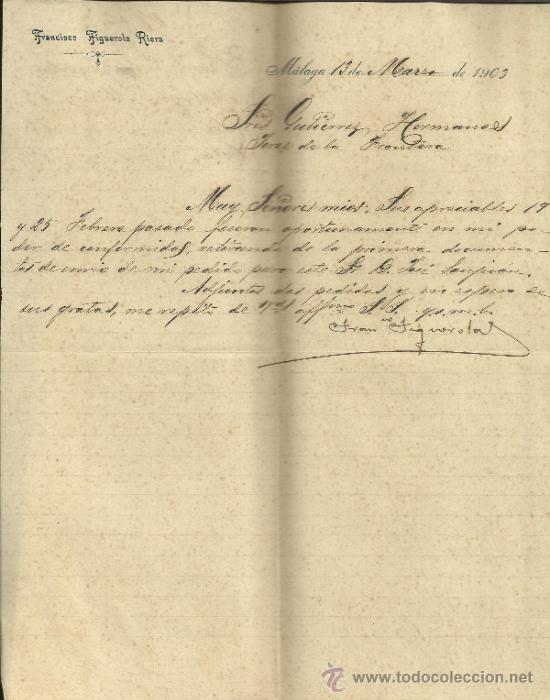 Francisco Figuerola Riera
Málaga 13 de Marzo de 1903
Sres Gutierrez Hermanos
Jerez de la Frontera
Muy Señores mios: Sus apreciables 19
y 25 Febrero pasado fueron oportunamente en mi po-
der de conformidad, retirando de la primera documen-
tos de envio de mi pedido para este Sr. D. José
Adjuntos dos pedidos y en espera de
sus gratas, me repito de Vdes affmo S. S. q.s.m.b.
Franco Figuerola
www.todocoleccion.net